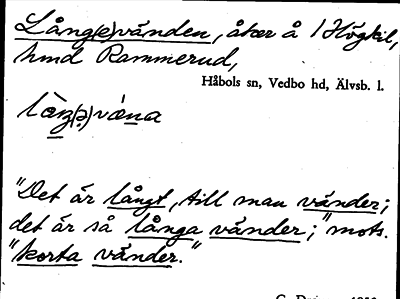 Lång(e)vänden, åker å 1 Högkil,
hmd Rammerud,
Håbols sn, Vedbo hd, Älvsb. l.
"Det är långt, till man vänder;
det är så långa vänder;" mots.
"korta vänder."